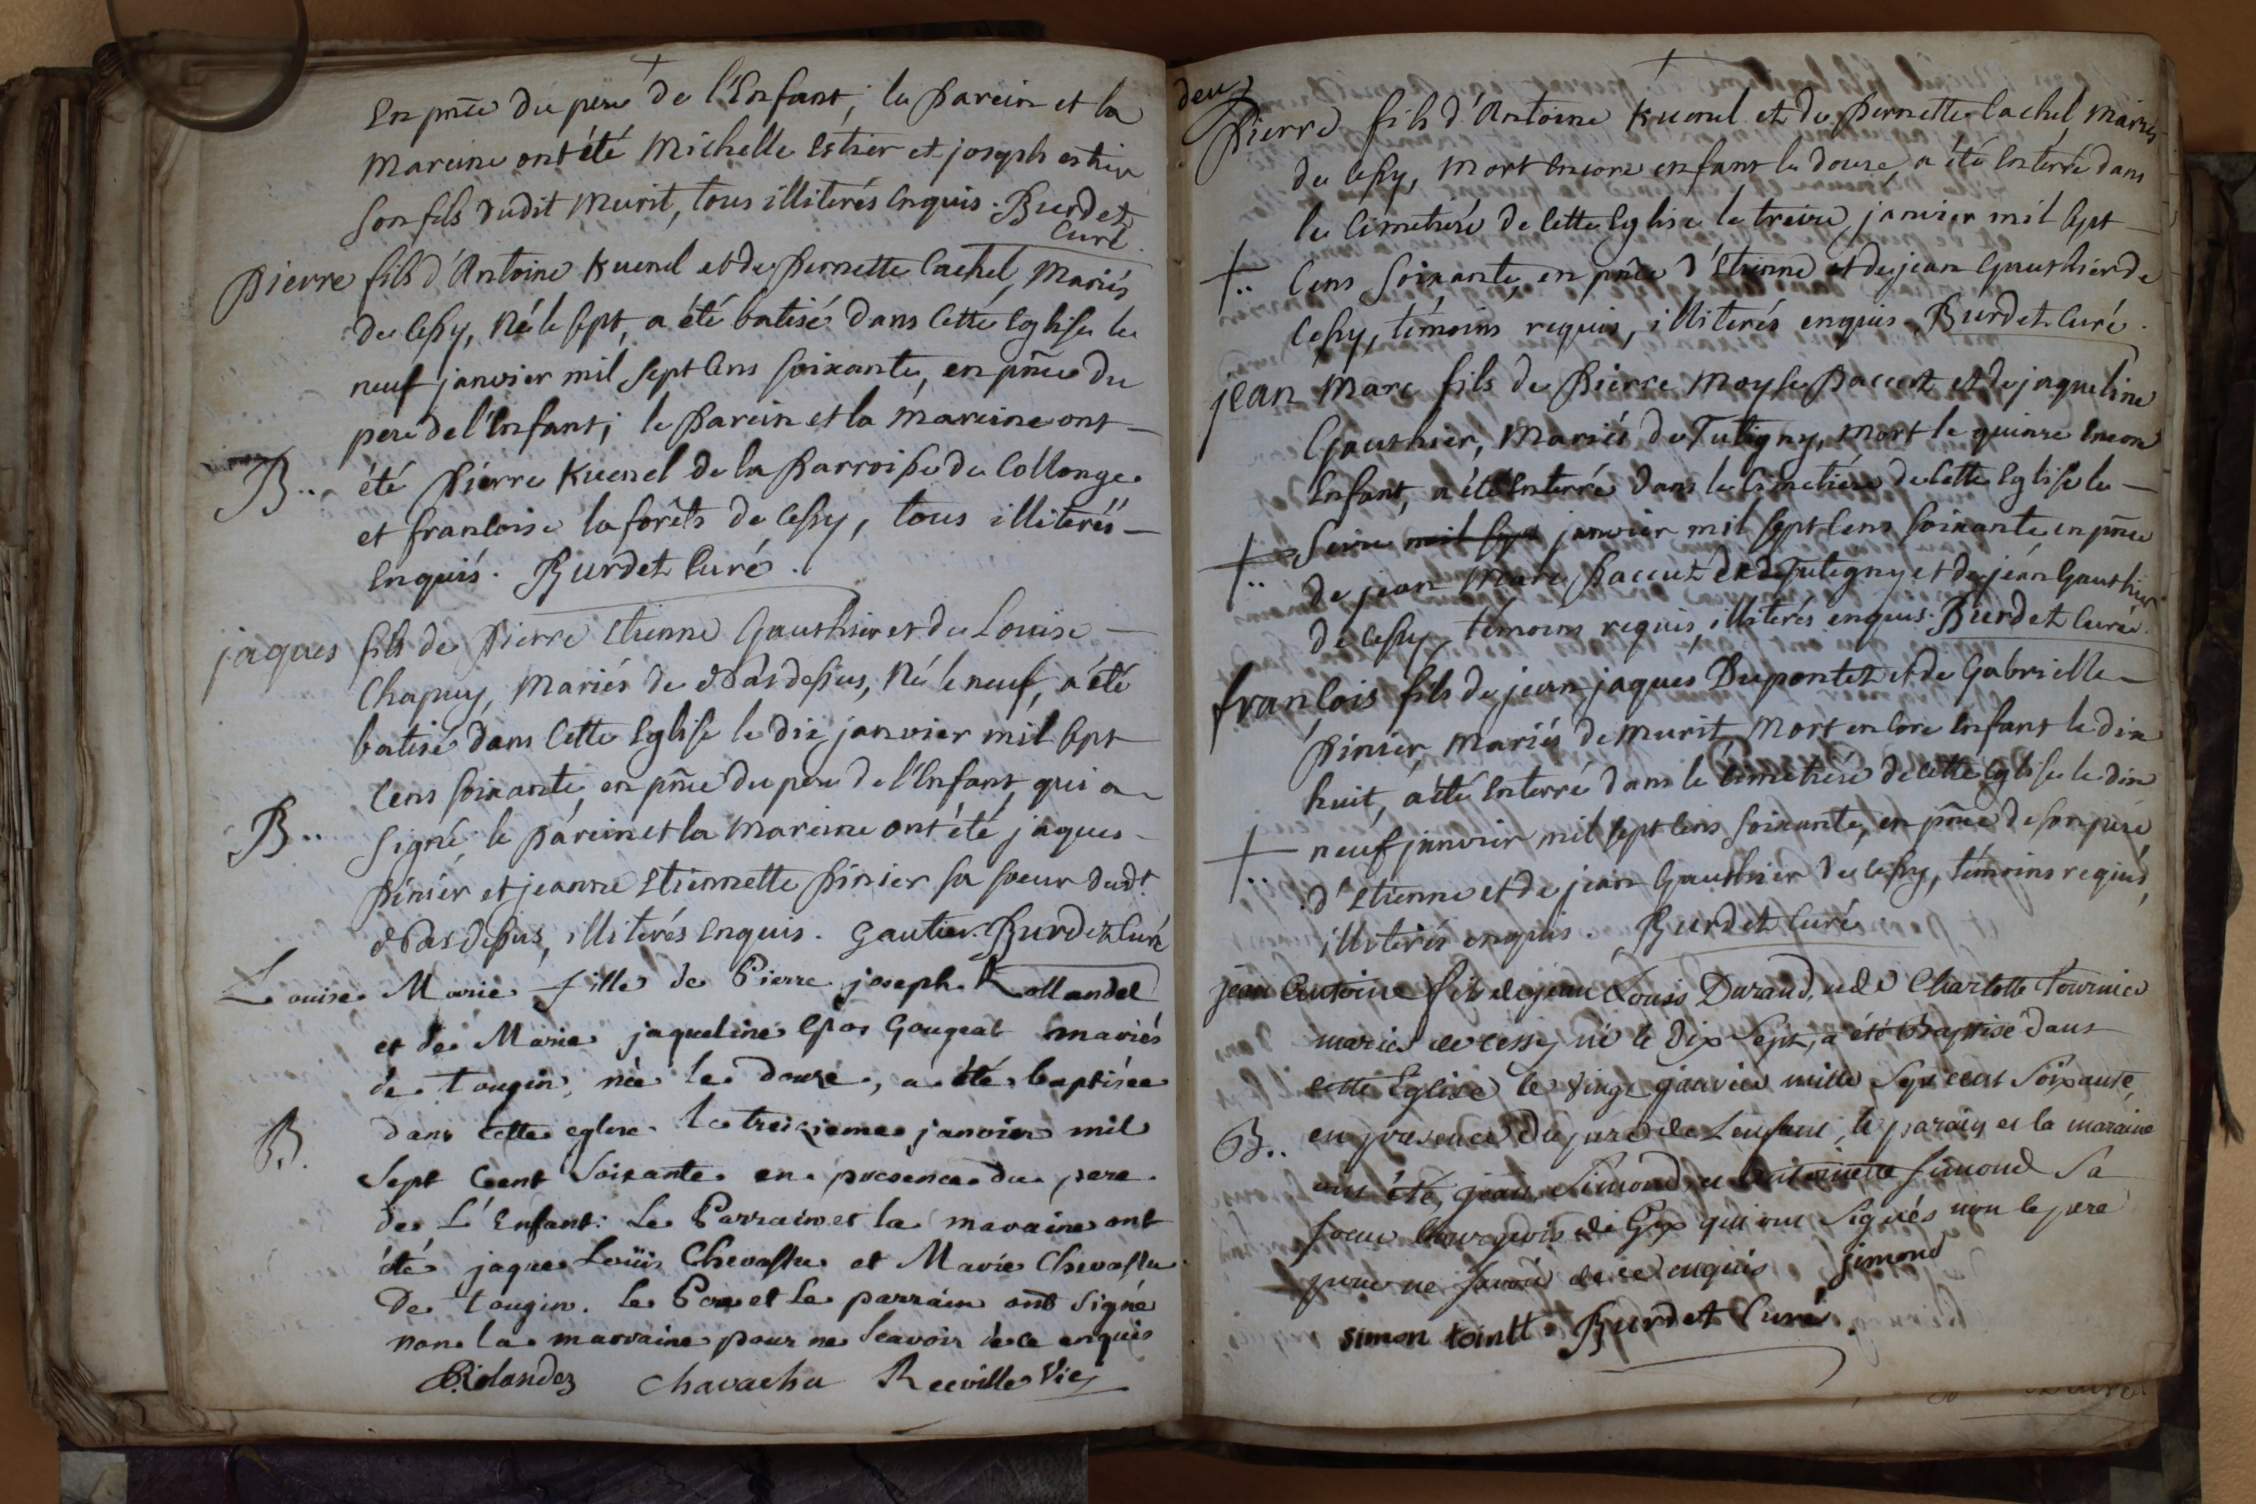 En pñce du pere de l'Enfant; le Parein et la
Mareine ont été Michelle Estier et joseph estier
son fils dudit Murit, tous illiterés Enquis. Burdet
Curé.
Pierre fils d'Antoine Kuenel et de Pernette Cachel, Mariés
de Cessy, Né le sept, a été batisé dans Cette Eglise le
neuf janvier mil sept Cens soixante, en pñce du
pere de l'Enfant; le Parein et la Mareine ont
B.. été Pierre Kuenel de la Parroisse de Collonge
et francoise laforêts de Cessy, tous illiterés
Enquis. Burdet Curé.
jaques fils de Pierre Etienne Gauthier et de Louise
Chapuy, Mariés de Pasdessus, Né le neuf, a été
batisé dans Cette Eglise le dix janvier mil sept
Cens soixante, en pñce du pere de l'Enfant, qui a
B.. signé; le Parein et la Mareine ont été jaques
Pinier et jeanne Etiennette Pinier sa soeur dud.t
Pasdessus, illiterés Enquis. Gautier. Burdet Curé
Louise Marie fille de Pierre joseph Rollandel
et de Marie jaqueline Gros Gougeat mariés
de tougin, née le douze, a été baptisée
B. dans cette eglise le treizieme janvier mil
sept Cent soixante en presence du pere
de L'Enfant. Le Parrain et la maraine ont
été jaque Loüis Chevassu et Marie Chevassu
De tougin. le Pere et Le parrain ont signé
non la marraine pour ne scavoir de ce enquis
Rolandez Chavachu Reeville Vic
deux
Pierre fils d'Antoine Kuenel et de Pernette Cachel Mariés
de Cessy, Mort encore enfant le douze, a été Enterré dans
le Cimetiere de Cette Eglise le treize janvier mil sept
Cens soixante, en pñce d'Etienne et de jean Gauthier de
Cessy, témoins requis, illiterés enquis. Burdet Curé.
jean Marc fils de Pierre Moyse Paccot et de jaqueline
Gauthier, Mariés de Tutigny, Mort le quinze Encore
Enfant, a été Enterré dans le Cimetiere de Cette Eglise le
Seize mil sept janvier mil sept Cens soixante en pñce
de jean Marc Paccut de Tutegny et de jean Gauthier
de Cessy, témoins requis, illiterés enquis. Burdet Curé.
francois fils de jean jaques Dupontet et de Gabrielle
Pinier, Mariés de Murit, Mort encore Enfant le dix
huit, a été Enterré dans le Cimetiere de cette Eglise le dix
neuf janvier mil sept Cens soixante, en pñce de son pere
d'Etienne et de jean Gauthier de Cessy, témoins requis,
illiterés enquis. Burdet Curé
jean Antoine fils de jean Louis Durand, et de Charlotte Fournier
mariés de cessy né le Dix Sept, a été Baptisé dans
cette Eglise le vingt janvier mille Sept cent Soixante,
B.. en presence du pere de Lenfant, le parain et la maraine
ont été, jean Simond, et Antoinette Simond Sa
soeur bourgeois de Gex qui ont Signés non le pere
pour ne Savoir de ce enquis Simond
simon tointt Burdet Curé.